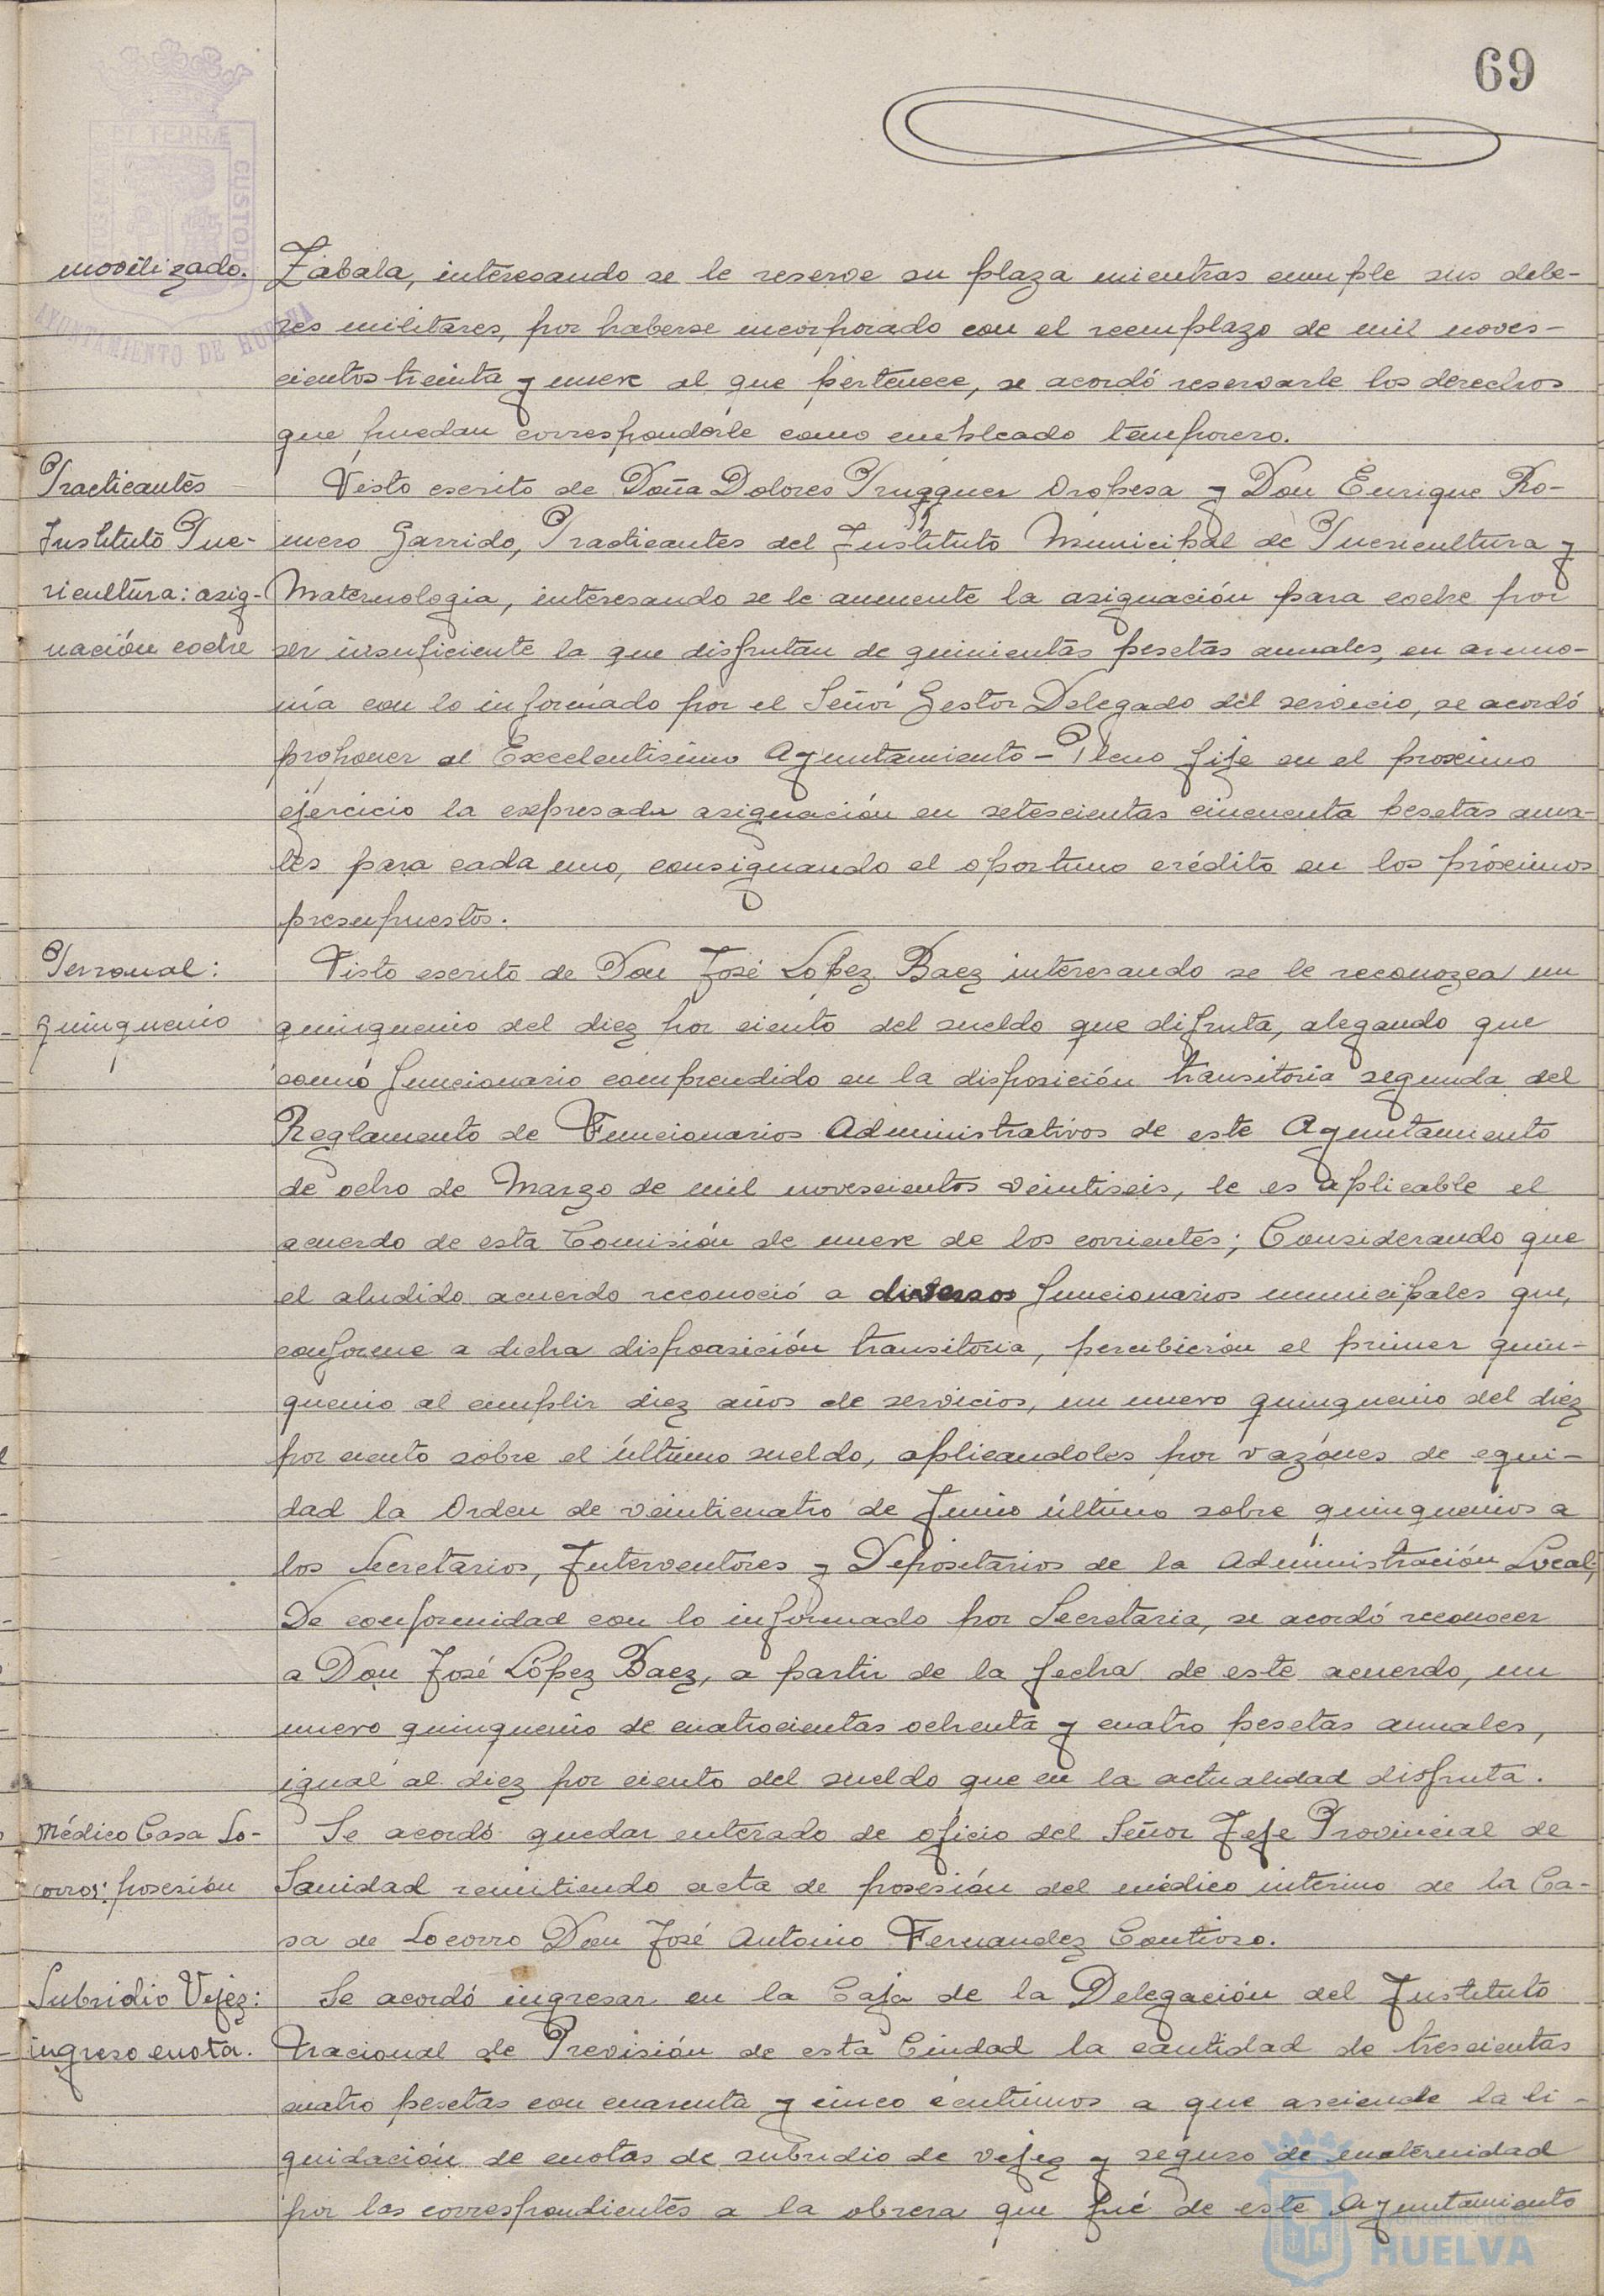 69
movilizado.
Zabala, interesando se le reserve su plaza mientras cumple sus debe-
res militares, por haberse incorporado con el reemplazo de mil noves-
cientos treinta y nueve al que pertenece, se acordó reservarle los derechos
que puedan corresponderle como empleado temporero.
Practicantes
Instituto Pue-
ricultura: asig-
nación coche
Visto escrito de Doña Dolores Prugguer Oropesa y Don Enrique Ro-
mero Garrido, Practicantes del Instituto Municipal de Puericultura y
Maternologia, interesando se le aumente la asignación para coche por
ser insuficiente la que disfrutan de quinientas pesetas anuales, en armo-
nía con lo informado por el Señor Gestor Delegado del servicio, se acordó
proponer al Excelentisimo Ayuntamiento-Pleno fije en el proximo
ejercicio la expresada asignación en setescientas cincuenta pesetas anua-
les para cada uno, consignando el oportuno crédito en los próximos
presupuestos.
Personal:
quinquenio
Visto escrito de Don José López Baez interesando se le reconozca un
quinquenio del diez por ciento del sueldo que difruta, alegando que
como funcionario comprendido en la disposición transitoria segunda del
Reglamento de Funcionarios Administrativos de este Ayuntamiento
de ocho de Marzo de mil novescientos veintiseis, le es aplicable el
acuerdo de esta Comisión de nueve de los corrientes; Considerando que
el aludido acuerdo reconoció a diversos funcionarios municipales que,
conforme a dicha disposición transitoria, percibieron el primer quin-
quenio al cumplir diez años de servicios, un nuevo quinquenio del diez
por ciento sobre el último sueldo, aplicandoles por razones de equi-
dad la Orden de veinticuatro de Junio último sobre quinquenios a
los Secretarios, Interventores y Depositarios de la Administración Local;
De conformidad con lo informado por Secretaria, se acordó reconocer
a Don José López Baez, a partir de la fecha de este acuerdo, un
nuevo quinquenio de cuatrocientas ochenta y cuatro pesetas anuales,
igual al diez por ciento del sueldo que en la actualidad disfruta.
Médico Casa So-
corros: posesión
Se acordó quedar enterado de oficio del Señor Jefe Provincial de
Sanidad remitiendo acta de posesión del médico interino de la Ca-
sa de Socorro Don José Antonio Fernandez Contioso.
Subsidio Vejez:
ingreso cuota.
Se acordó ingresar en la Caja de la Delegación del Instituto
Nacional de Previsión de esta Ciudad la cantidad de trescientas
cuatro pesetas con cuarenta y cinco céntimos a que asciende la li-
quidación de cuotas de subsidio de vejez y seguro de maternidad
por las correspondientes a la obrera que fué de este Ayuntamiento
ET TERRÆ
CUSTODIA
AYUNTAMIENTO DE HUELVA
Ayuntamiento de
HUELVA